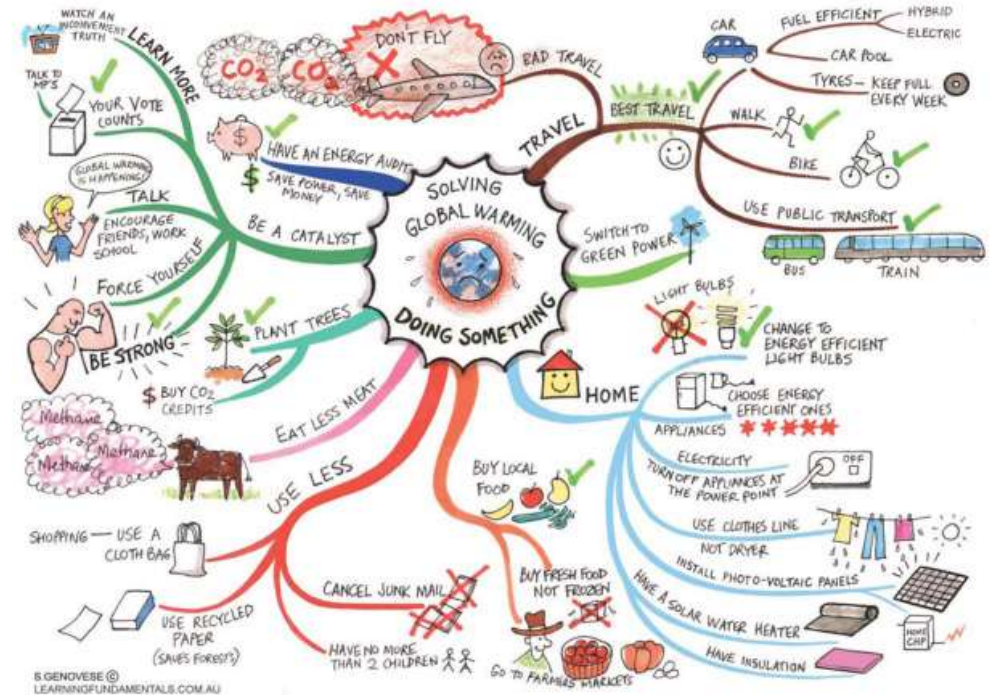 SOLVING
GLOBAL WARMING
DOING SOMETHING
TRAVEL
BAD TRAVEL
DON'T FLY
CO2
CO2
BEST TRAVEL
CAR
FUEL EFFICIENT
HYBRID
ELECTRIC
CAR POOL
TYRES - KEEP FULL
EVERY WEEK
WALK
BIKE
USE PUBLIC TRANSPORT
BUS
TRAIN
SWITCH TO
GREEN POWER
HOME
LIGHT BULBS
CHANGE TO
ENERGY EFFICIENT
LIGHT BULBS
APPLIANCES
CHOOSE ENERGY
EFFICIENT ONES
ELECTRICITY
TURN OFF APPLIANCES AT
THE POWER POINT
OFF
USE CLOTHES LINE
NOT DRYER
INSTALL PHOTO-VOLTAIC PANELS
HAVE A SOLAR WATER HEATER
HOME
CHP
HAVE INSULATION
BUY LOCAL
FOOD
BUY FRESH FOOD
NOT FROZEN
GO TO FARMERS MARKETS
USE LESS
SHOPPING — USE A
CLOTH BAG
USE RECYCLED
PAPER
(SAVES FORESTS)
CANCEL JUNK MAIL
HAVE NO MORE
THAN 2 CHILDREN
EAT LESS MEAT
Methane
Methane
Methane
PLANT TREES
$ BUY CO2
CREDITS
BE A CATALYST
LEARN MORE
WATCH AN
INCONVENIENT
TRUTH
TALK TO
MP'S
YOUR VOTE
COUNTS
TALK
GLOBAL WARMING
IS HAPPENING!
ENCOURAGE
FRIENDS, WORK
SCHOOL
FORCE YOURSELF
BE STRONG
HAVE AN ENERGY AUDIT
$
$ SAVE POWER, SAVE
MONEY
S.GENOVESE ©
LEARNINGFUNDAMENTALS.COM.AU